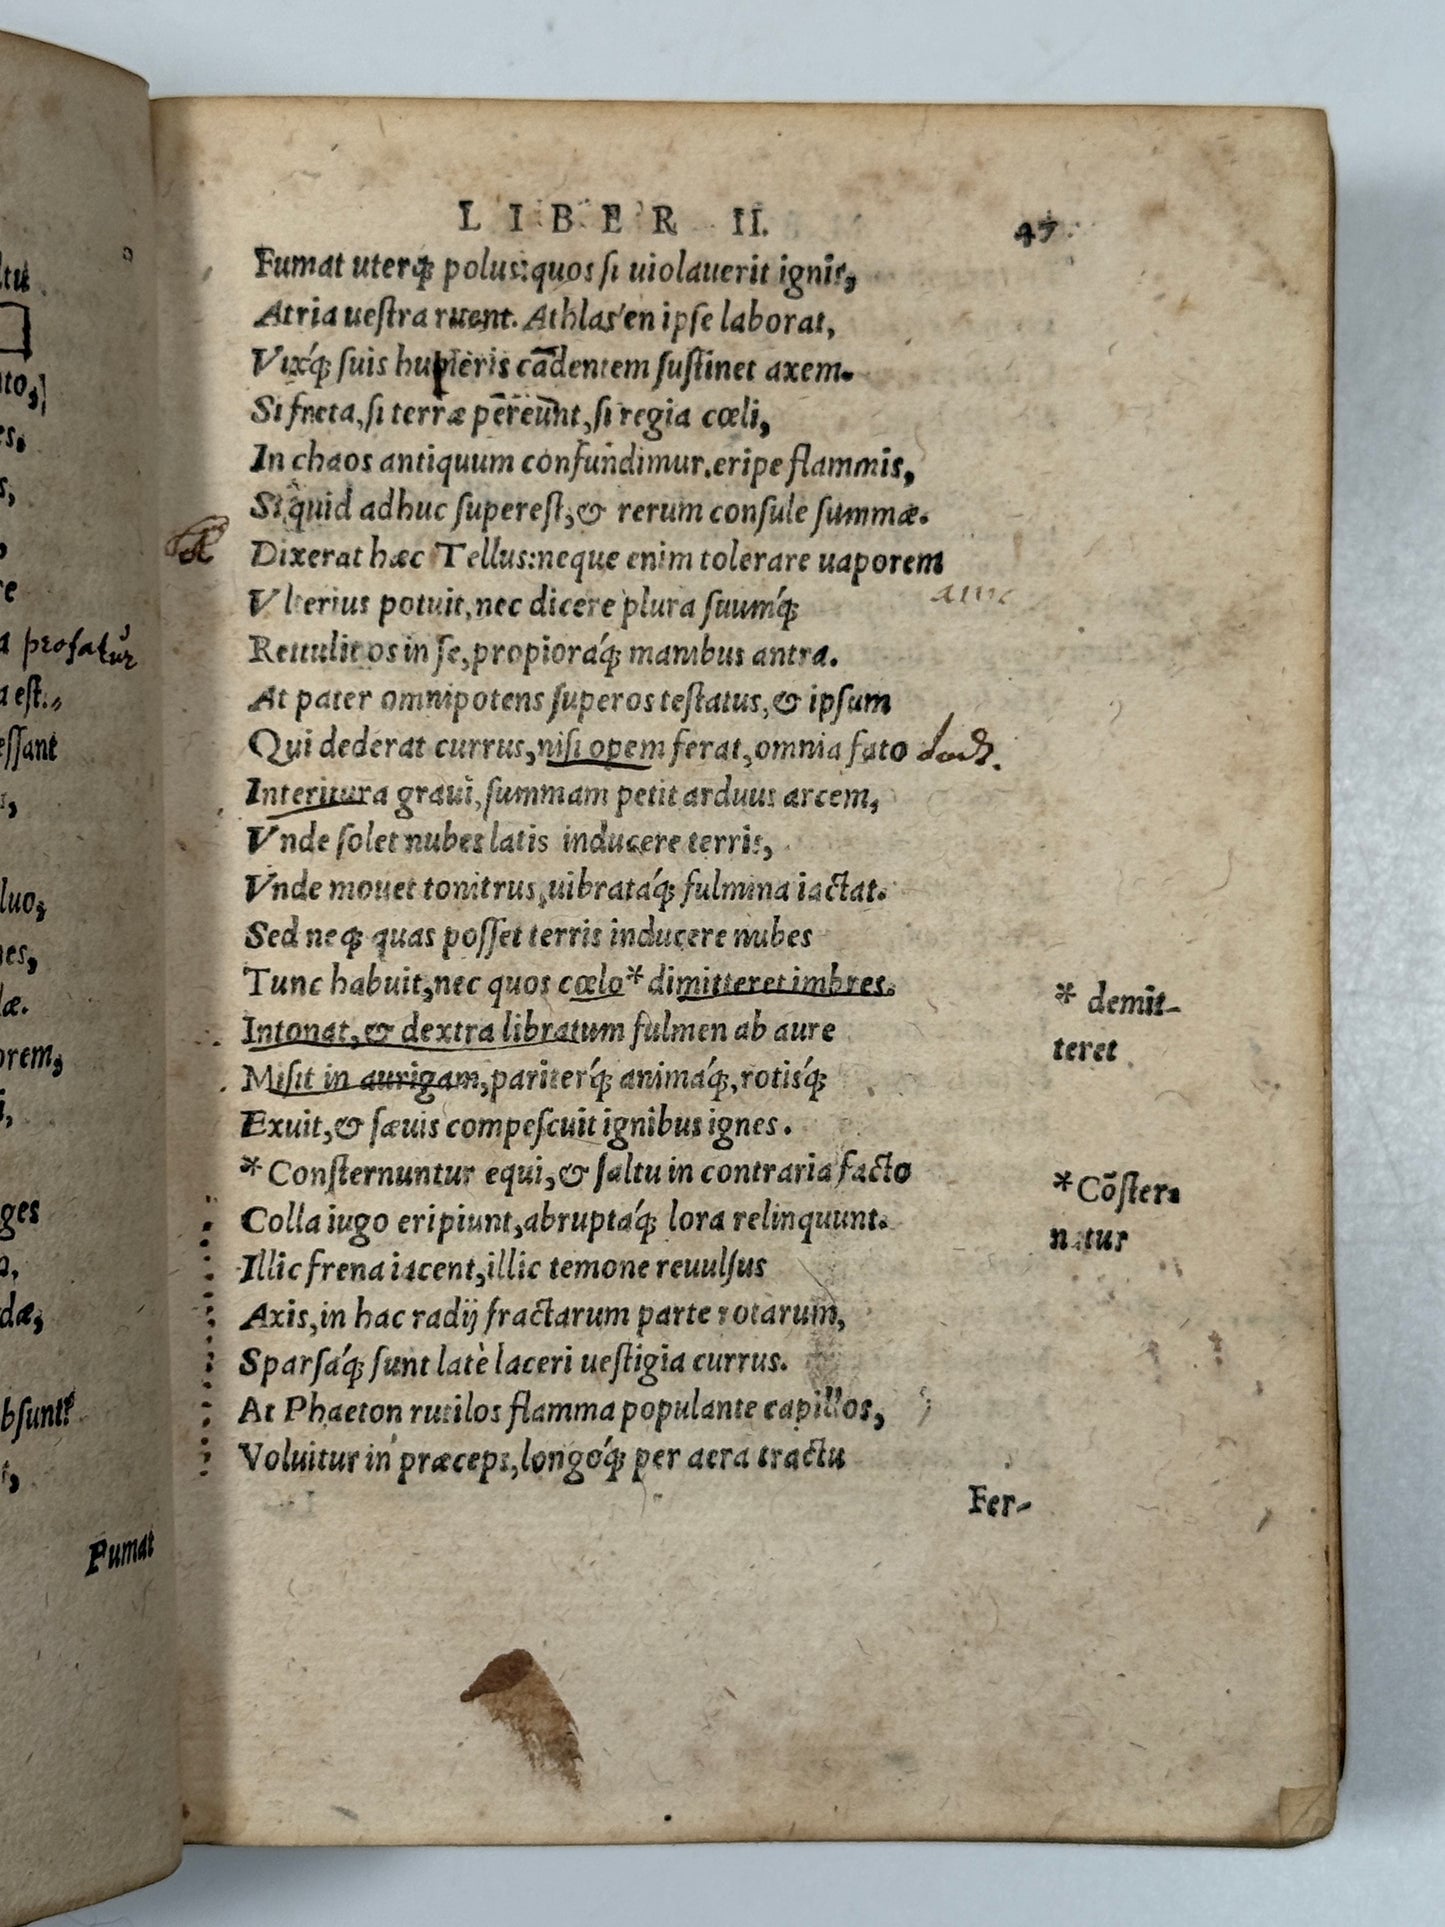 LIBER II.
47
Fumat uterq; polus: quos si uiolauerit ignis,
Atria uestra ruent. Athlas en ipse laborat,
Vixq́; suis humeris cadentem sustinet axem.
Si freta, si terræ pereunt, si regia cœli,
In chaos antiquum confundimur. eripe flammis,
Si quid adhuc superest, & rerum consule summæ.
Dixerat hæc Tellus: neque enim tolerare uaporem
Vlterius potuit, nec dicere plura suumq́;
Rettulit os in se, propioraq́; manibus antra.
At pater omnipotens superos testatus, & ipsum
Qui dederat currus, nisi opem ferat, omnia fato
Interitura graui, summam petit arduus arcem,
Vnde solet nubes latis inducere terris,
Vnde mouet tonitrus, uibrataq́; fulmina iactat.
Sed neq; quas posset terris inducere nubes
Tunc habuit, nec quos cœlo * dimitteret imbres.
Intonat, & dextra libratum fulmen ab aure
Misit in aurigam, pariterq́; animaq́;, rotisq́;
Exuit, & sæuis compescuit ignibus ignes.
* Consternuntur equi, & saltu in contraria facto
Colla iugo eripiunt, abruptaq́; lora relinquunt.
Illic frena iacent, illic temone reuulsus
Axis, in hac radij fractarum parte rotarum,
Sparsaq́; sunt latè laceri uestigia currus.
At Phaeton rutilos flamma populante capillos,
Voluitur in præceps, longoq́; per aera tractu
Fer-
* demit-
teret
* Cõster-
natur
profatur
est.
Fumat